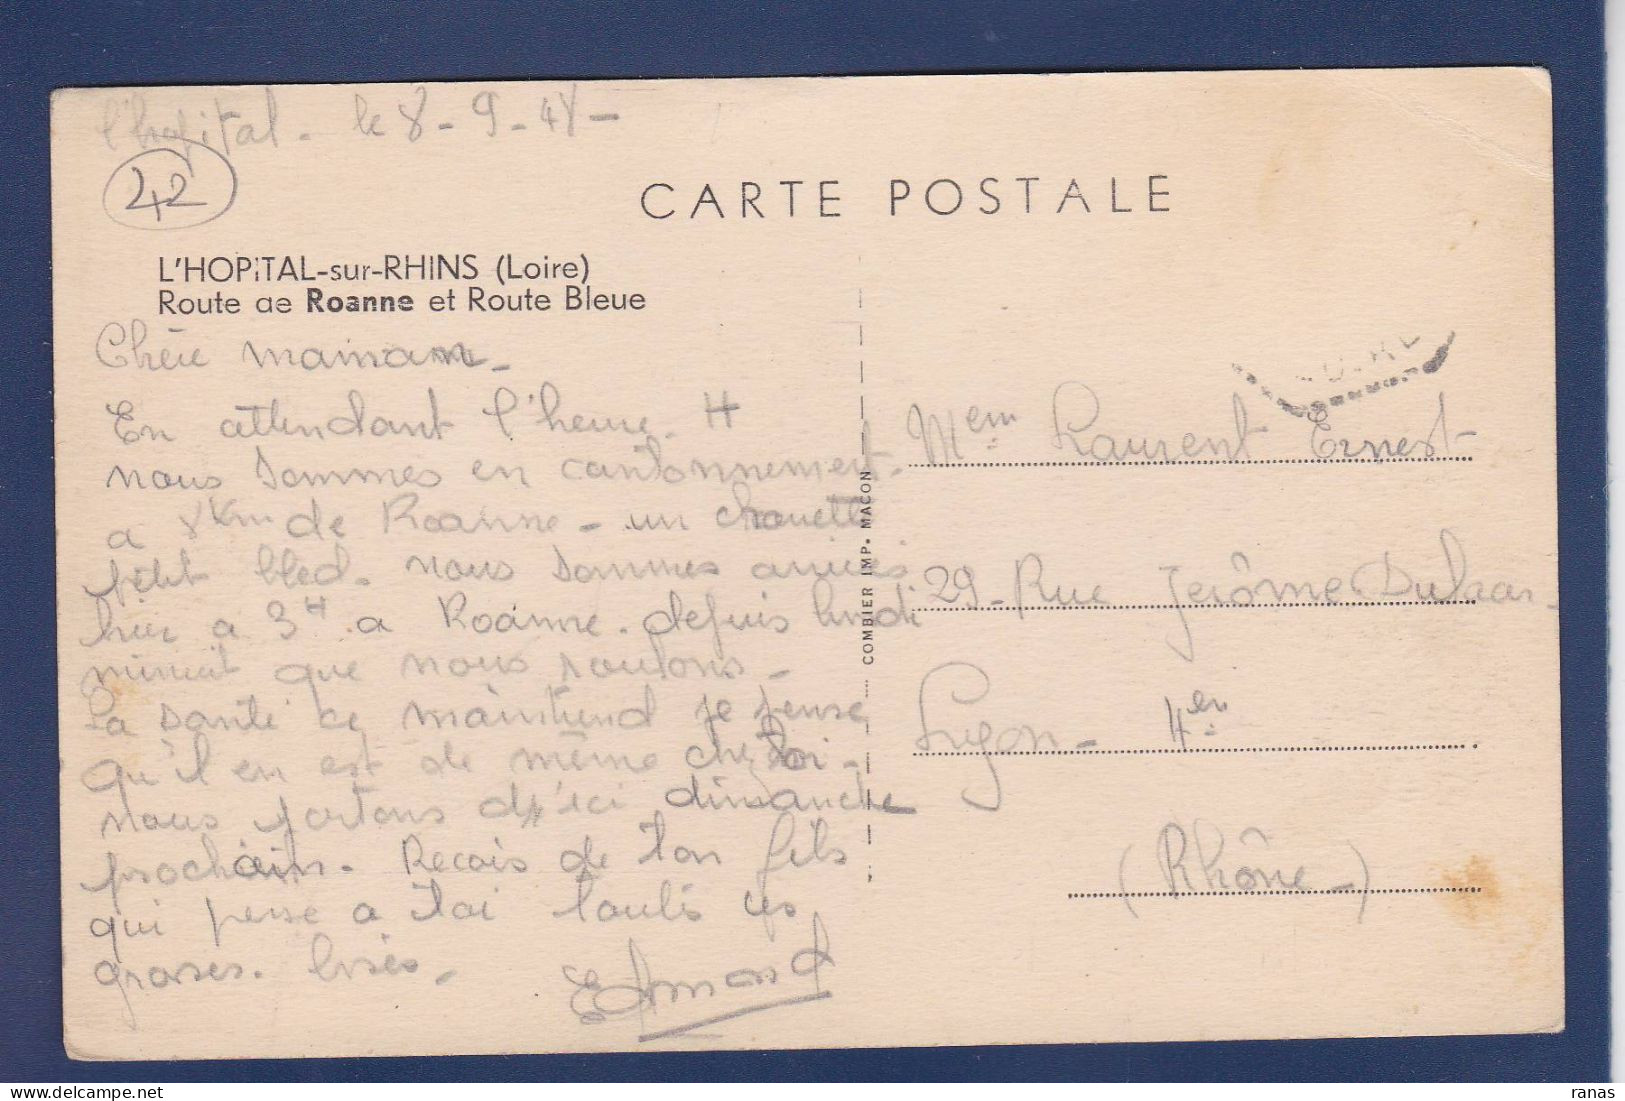 l'hopital - le 8-9-48 -
42
CARTE POSTALE
L'HOPITAL-sur-RHINS (Loire)
Route de Roanne et Route Bleue
Chère maman -
En attendant l'heure. H
nous sommes en cantonnement.
a 8km de Roanne - un chouette
petit bled. nous sommes arrivés
hier a 3H a Roanne. depuis lundi
minuit que nous roulons -
La santé ce maintiend je pense
qu'il en est de même chez toi -
nous partons d'ici dimanche
prochain. Recois de ton fils
qui pense a toi toutes ces
grosses. bises -
Edmond
COMBIER IMP. MACON
Mem Laurent Ernest
29 - Rue Jerôme Dulaar -
Lyon - 4en
(Rhône -)
ranas